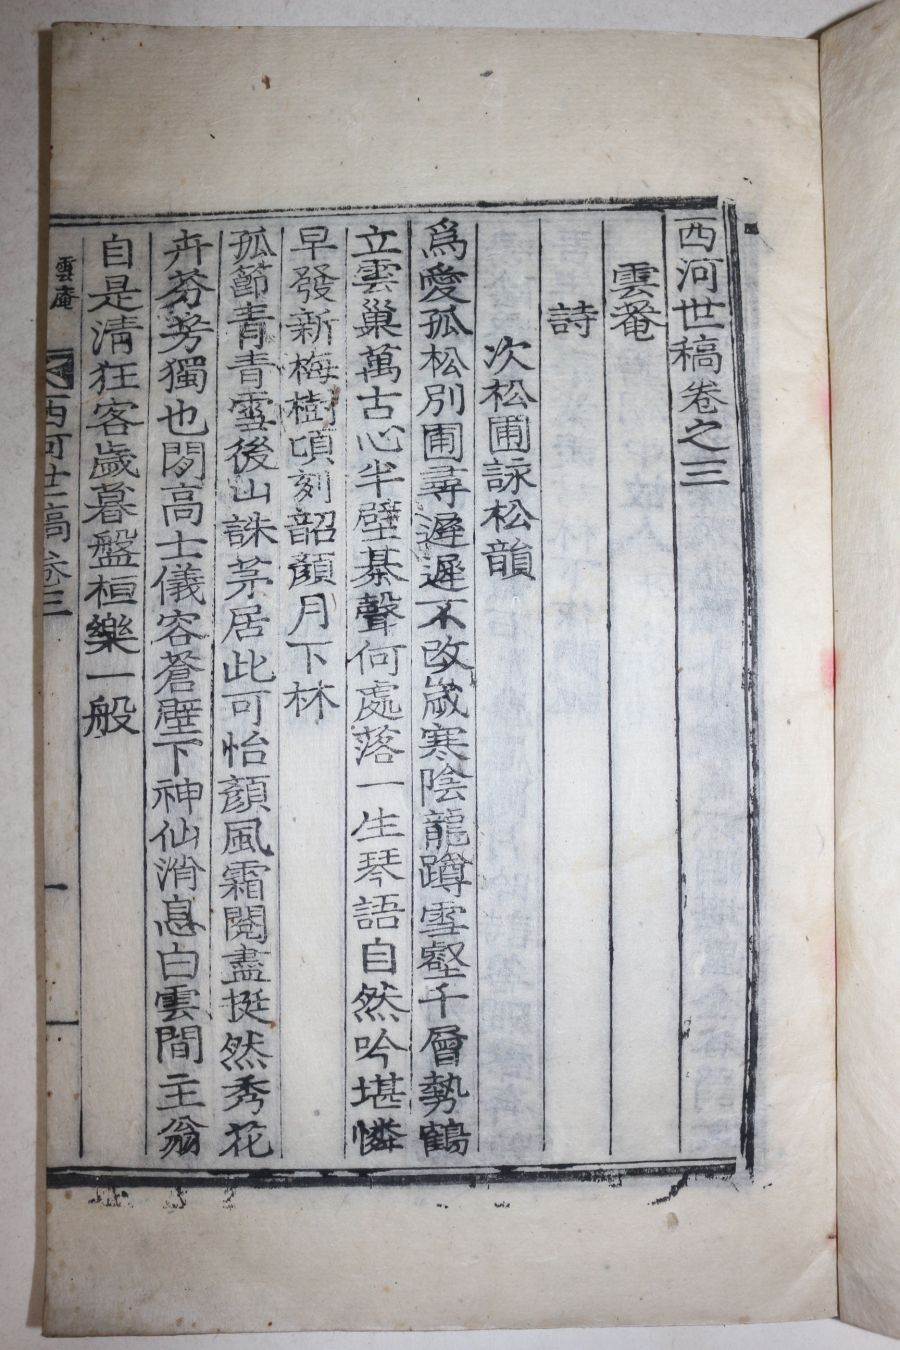 西河世稿卷之三
雲菴
詩
次松圃詠松韻
爲愛孤松別圃尋遲遲不改歲寒陰龍蹲雪壑千層勢鶴
立雲巢萬古心半壁棊聲何處落一生琴語自然吟堪憐
早發新梅樹頃刻韶顔月下林
孤節青青雪後山誅茅居此可怡顔風霜閱盡挺然秀花
卉芬芳獨也閑高士儀容蒼壁下神仙消息白雲間主翁
自是清狂客歲暮盤桓樂一般
雲庵
西河世稿卷三
一